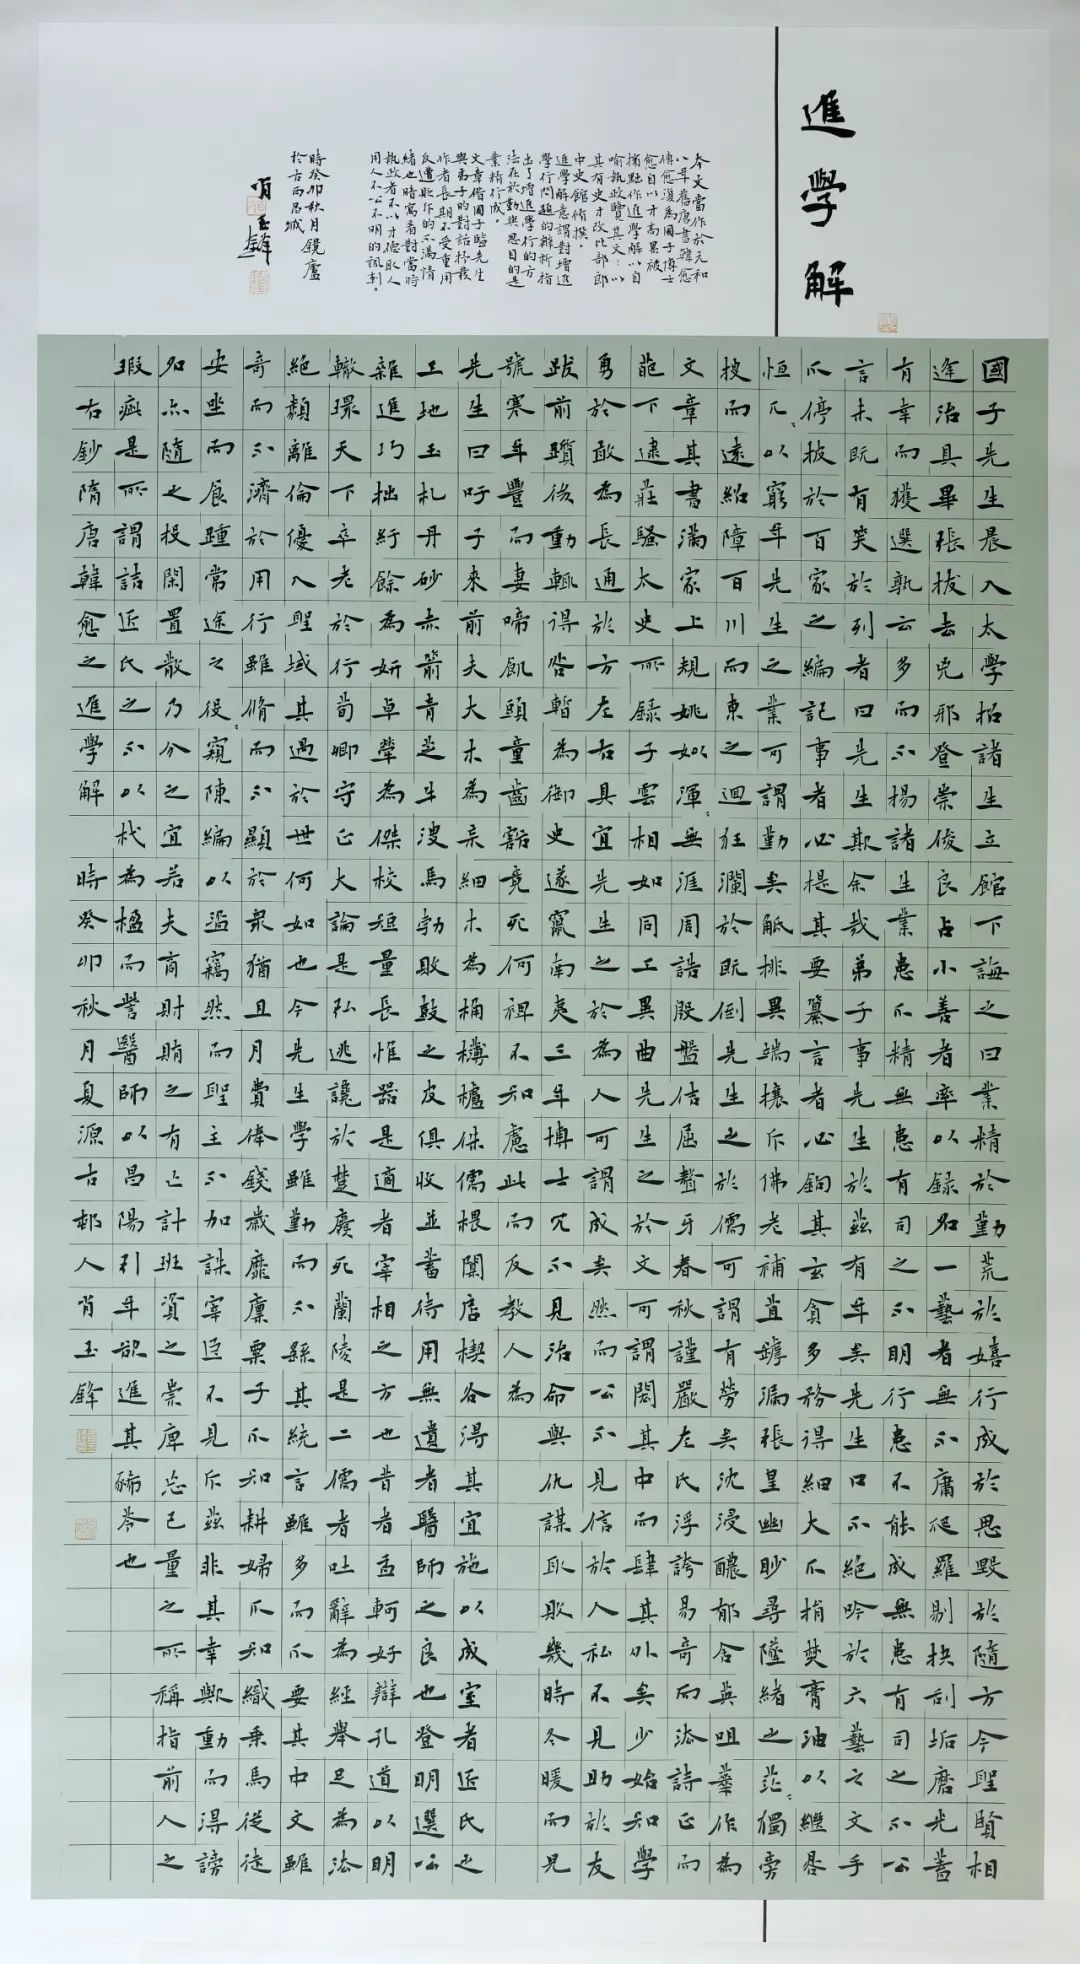 進學解
本文當作於元和
八年舊唐書韓愈
傳愈復為國子博士
愈自以才高累被
擯黜作進學解以自
喻執政覽其文……以
其有史才改比部郎
中史館修撰。
進學解意謂對增進
學行問題的辨析指
出了增進學行的方
法在於勤與思目的是
業精行成。
文章借國子監先生
與弟子的對話抒發
作者長期不受重用
反遭貶斥的不滿情
緒也時寓着對當時
執政者不以才德取人
用人不公不明的諷刺。
時癸卯秋月鏡廬
於古西昌城
肖玉鋒
國子先生晨入太學招諸生立館下誨之曰業精於勤荒於嬉行成於思毀於隨方今聖賢相
逢治具畢張拔去兇邪登崇俊良占小善者率以錄名一藝者無不庸爬羅剔抉刮垢磨光蓋
有幸而獲選孰云多而不揚諸生業患不精無患有司之不明行患不能成無患有司之不公
言未既有笑於列者曰先生欺余哉弟子事先生於茲有年矣先生口不絕吟於六藝之文手
不停披於百家之編記事者必提其要纂言者必鉤其玄貪多務得細大不捐焚膏油以繼晷
恒兀々以窮年先生之業可謂勤矣觝排異端攘斥佛老補苴罅漏張皇幽眇尋墜緒之茫々獨旁
搜而遠紹障百川而東之迴狂瀾於既倒先生之於儒可謂有勞矣沈浸醲郁含英咀華作為
文章其書滿家上規姚姒渾々無涯周誥殷盤佶屈聱牙春秋謹嚴左氏浮誇易奇而法詩正而
葩下逮莊騷太史所錄子雲相如同工異曲先生之於文可謂閎其中而肆其外矣少始知學
勇於敢為長通於方左右具宜先生之於為人可謂成矣然而公不見信於人私不見助於友
跋前躓後動輒得咎暫為御史遂竄南夷三年博士冗不見治命與仇謀取敗幾時冬暖而兒
號寒年豐而妻啼飢頭童齒豁竟死何裨不知慮此而反教人為
先生曰吁子來前夫大木為杗細木為桷欂櫨侏儒椳闑扂楔各得其宜施以成室者匠氏之
工地玉札丹砂赤箭青芝牛溲馬勃敗鼓之皮俱收並蓄待用無遺者醫師之良也登明選公
雜進巧拙紆餘為妍卓犖為傑校短量長惟器是適者宰相之方也昔者孟軻好辯孔道以明
轍環天下卒老於行荀卿守正大論是弘逃讒於楚廢死蘭陵是二儒者吐辭為經舉足為法
絕類離倫優入聖域其遇於世何如也今先生學雖勤而不繇其統言雖多而不要其中文雖
奇而不濟於用行雖脩而不顯於眾猶且月費俸錢歲靡廩粟子不知耕婦不知織乘馬從徒
安坐而食踵常途之役窺陳編以盜竊然而聖主不加誅宰臣不見斥茲非其幸歟動而得謗
名亦隨之投閑置散乃分之宜若夫商財賄之有亡計班資之崇庳忘己量之所稱指前人之
瑕疵是所謂詰匠氏之不以杙為楹而訾醫師以昌陽引年欲進其豨苓也
右鈔隋唐韓愈之進學解 時癸卯秋月夏源古邨人肖玉鋒